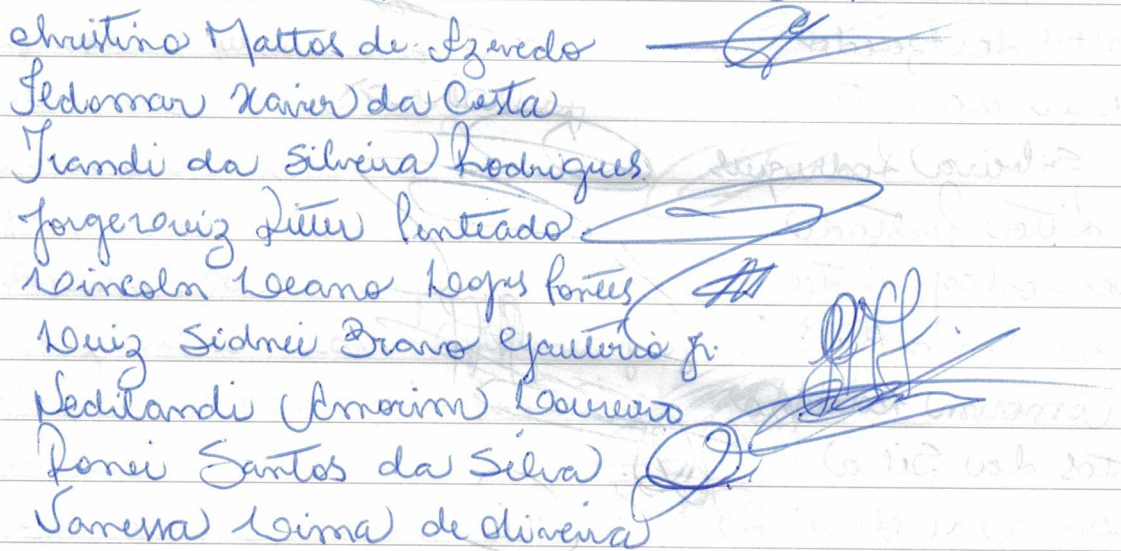 Christino Mattos de Azevedo
Fledomar Xavier da Costa
Irandi da Silveira Rodrigues
Jorge Luiz Ritter Penteado
Lincoln Leano Lopes Pontes
Luiz Sidnei Bravo Gautério Jr.
Nedilandi Amorim Loureiro
Ronei Santos da Silva
Vanessa Lima de Oliveira